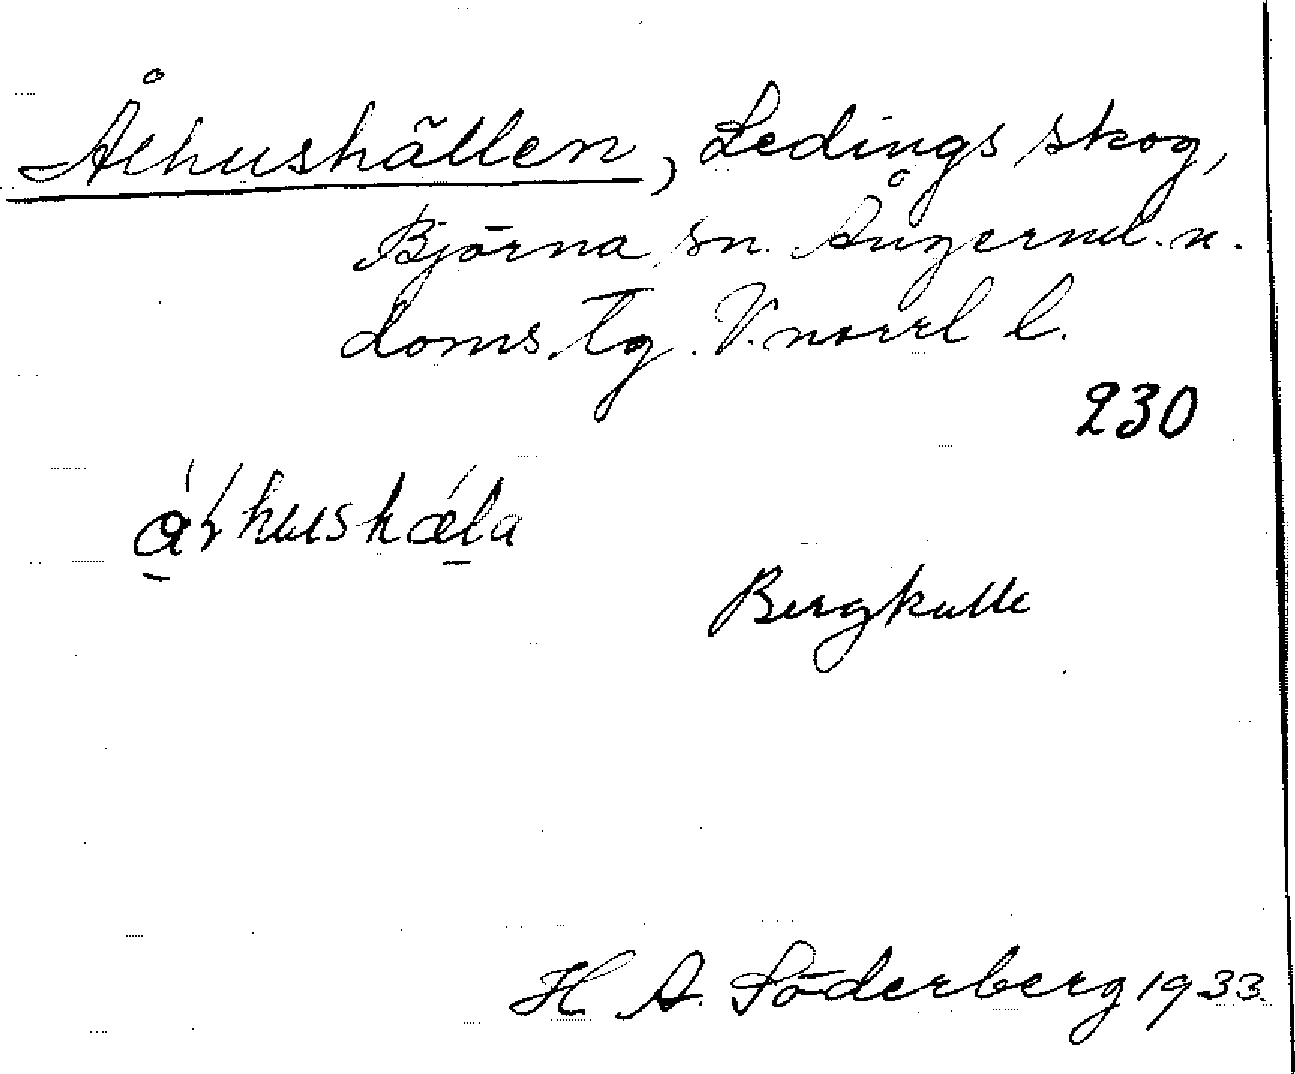 Åthushällen, Ledings skog,
Björna sn. Ångerml. n.
doms.tg. V.norrl l.
230
Bergkulle
H. A. Söderberg 1933.